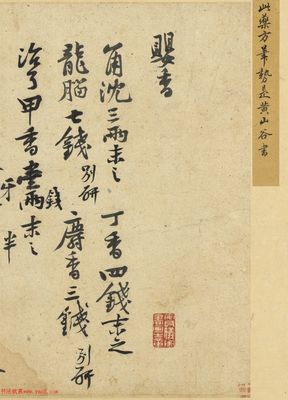 此藥方筆勢是黃山谷書
嬰香
角沈三兩末之 丁香四錢末之
龍腦七錢別研 麝香三錢別研
治了甲香壹兩錢末之
牙 半
书法欣赏www.yac8.com